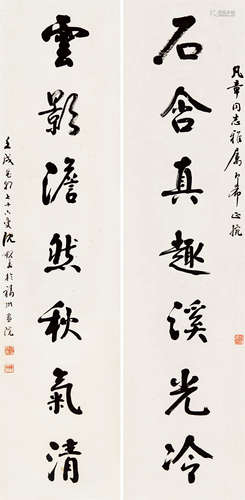 石含真趣溪光冷
凡章同志雅属即希正腕
雲影澹然秋氣清
壬戌
七十六叟沈
於福州畫院